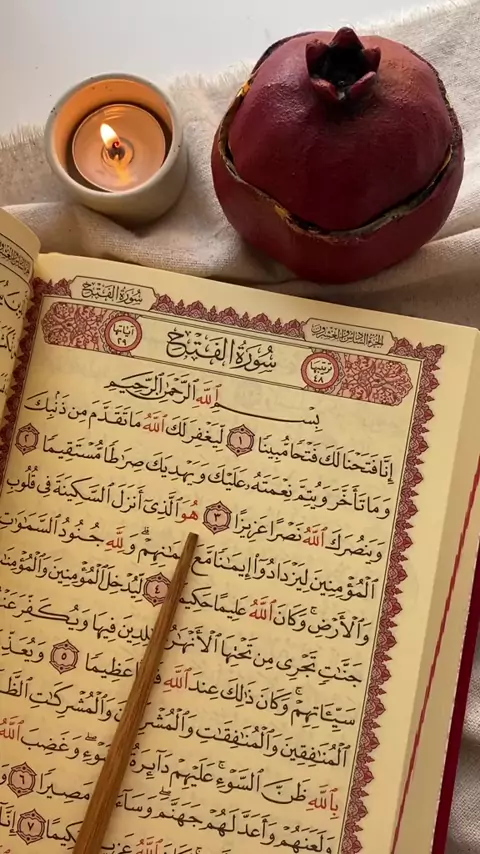 سُورَةُ الفَتْحِ
الجزء السادس والعشرون
آياتها ٢٩
سُورَةُ الفَتْحِ
ترتيبها ٤٨
بِسْمِ ٱللَّهِ ٱلرَّحْمَٰنِ ٱلرَّحِيمِ
إِنَّا فَتَحْنَا لَكَ فَتْحًا مُّبِينًا ١ لِّيَغْفِرَ لَكَ ٱللَّهُ مَا تَقَدَّمَ مِن ذَنۢبِكَ
وَمَا تَأَخَّرَ وَيُتِمَّ نِعْمَتَهُۥ عَلَيْكَ وَيَهْدِيَكَ صِرَٰطًا مُّسْتَقِيمًا ٢
وَيَنصُرَكَ ٱللَّهُ نَصْرًا عَزِيزًا ٣ هُوَ ٱلَّذِىٓ أَنزَلَ ٱلسَّكِينَةَ فِى قُلُوبِ
ٱلْمُؤْمِنِينَ لِيَزْدَادُوٓا۟ إِيمَٰنًا مَّعَ إِيمَٰنِهِمْ ۗ وَلِلَّهِ جُنُودُ ٱلسَّمَٰوَٰتِ
وَٱلْأَرْضِ ۚ وَكَانَ ٱللَّهُ عَلِيمًا حَكِيمًا ٤ لِّيُدْخِلَ ٱلْمُؤْمِنِينَ وَٱلْمُؤْمِنَٰتِ
جَنَّٰتٍ تَجْرِى مِن تَحْتِهَا ٱلْأَنْهَٰرُ خَٰلِدِينَ فِيهَا وَيُكَفِّرَ عَنْهُمْ
سَيِّـَٔاتِهِمْ ۚ وَكَانَ ذَٰلِكَ عِندَ ٱللَّهِ فَوْزًا عَظِيمًا ٥ وَيُعَذِّبَ
ٱلْمُنَٰفِقِينَ وَٱلْمُنَٰفِقَٰتِ وَٱلْمُشْرِكِينَ وَٱلْمُشْرِكَٰتِ
بِٱللَّهِ ظَنَّ ٱلسَّوْءِ ۚ عَلَيْهِمْ دَآئِرَةُ ٱلسَّوْءِ ۖ وَغَضِبَ ٱللَّهُ
وَلَعَنَهُمْ وَأَعَدَّ لَهُمْ جَهَنَّمَ ۖ وَسَآءَتْ مَصِيرًا ٦
ٱللَّهُ عَزِيزًا حَكِيمًا ٧ إِنَّآ